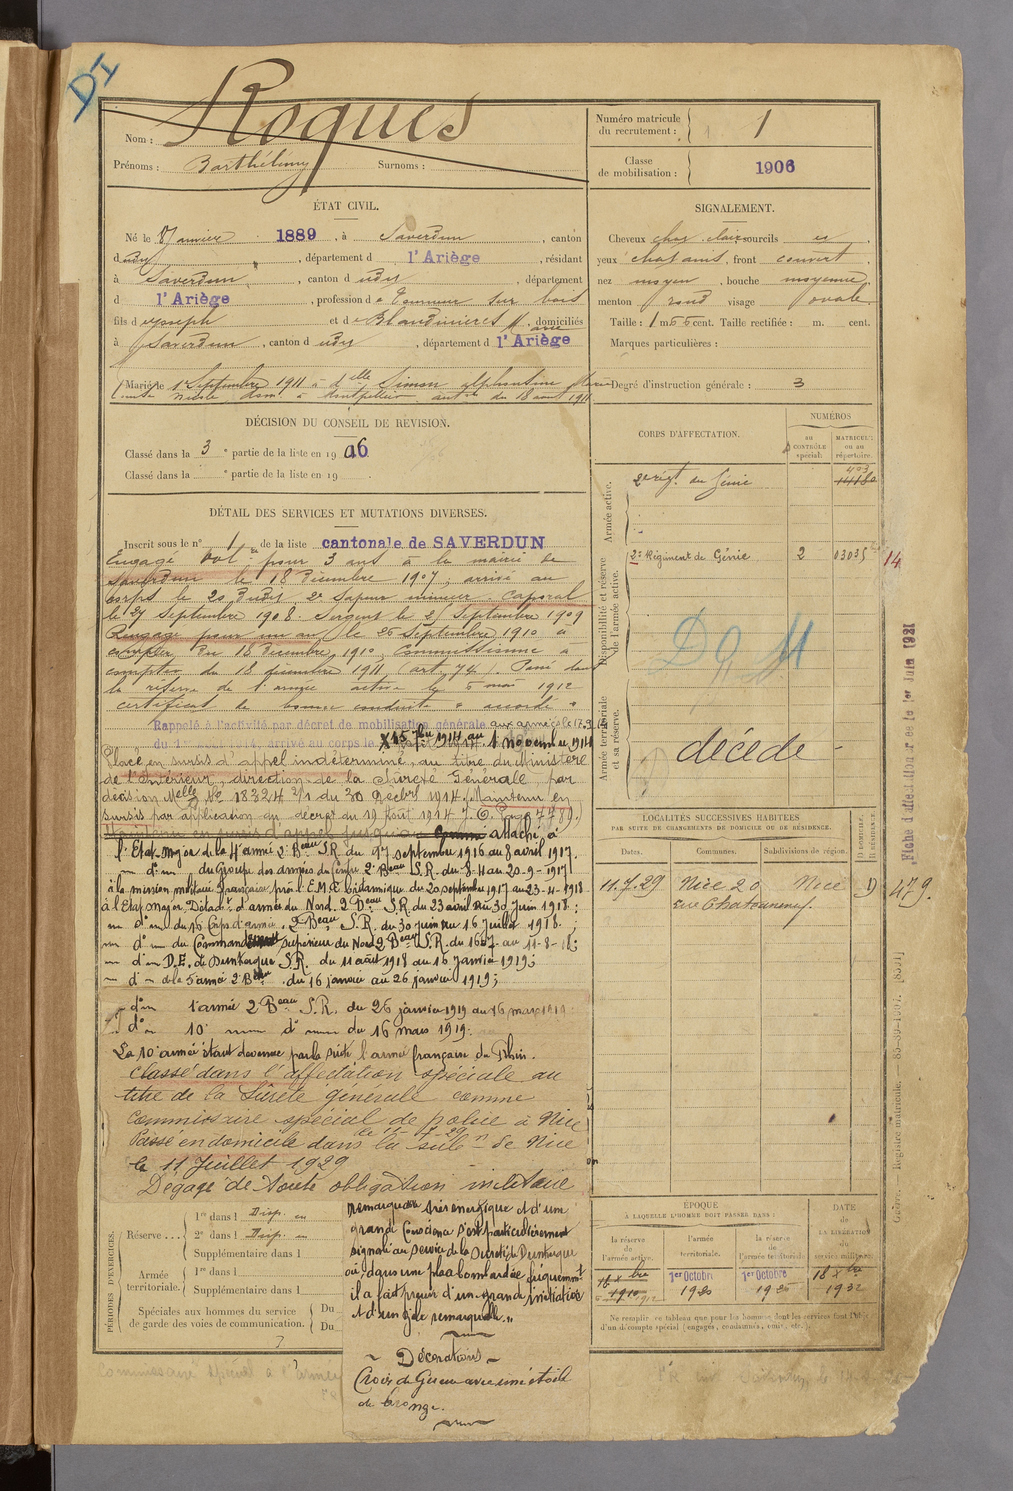 DI
Nom : Roques
Prénoms : Barthélemy Surnoms :
Numéro matricule du recrutement : 1
Classe de mobilisation : 1906
ÉTAT CIVIL.
Né le 8 Janvier 1889, à Saverdun, canton
dudit, département d l'Ariège, résidant
à Saverdun, canton dudit, département
d l'Ariège, profession de Tourneur sur bois
fils de Joseph et de Blandinières Marie, domiciliés
à Saverdun, canton dudit, département d l'Ariège
Marié le 1er Septembre 1911 à delle Simon Alphonsine
domé à Montpellier, auton du 18 août 1911
SIGNALEMENT.
Cheveux chat. clair sourcils id
yeux chatains, front couvert,
nez moyen, bouche moyenne,
menton rond visage ovale
Taille : 1 m 55 cent. Taille rectifiée : m. cent.
Marques particulières :
Degré d'instruction générale : 3
DÉCISION DU CONSEIL DE RÉVISION.
Classé dans la 3e partie de la liste en 1906
Classé dans la e partie de la liste en 19 .
CORPS D'AFFECTATION.
NUMÉROS
au contrôle spécial.
matricule ou au répertoire.
Armée active.
2e régt. du Génie
403
Disponibilité et réserve de l'armée active.
2e Régiment de Génie 2 03035
14
DG M
Armée territoriale et sa réserve.
décédé
Fiche d'affectation créée le 1er Juin 1921
DÉTAIL DES SERVICES ET MUTATIONS DIVERSES.
Inscrit sous le n° 1 de la liste cantonale de SAVERDUN
Engagé vol. pour 3 ans à la mairie de
Saverdun le 18 Décembre 1907, arrivé au
corps le 20 dudit, 2e Sapeur mineur. Caporal
le 27 Septembre 1908. Sergent le 25 Septembre 1909
Rengagé pour un an le 26 Septembre 1910 à
compter du 18 Décembre 1910. Commissionné à
compter du 18 décembre 1911 (art. 74. Passé dans
la réserve de l'armée active le 5 mai 1912
certificat de bonne conduite "accordé"
Rappelé à l'activité par décret de mobilisation générale aux armées le
du 1er août 1914, arrivé au corps le
au 1 novembre 1914
Placé en sursis d'appel indéterminé, au titre du Ministère
de l'Intérieur, direction de la Sûreté Générale par
décision Melle No 18324 3/1 du 30 Décbre 1914. Maintenu en
sursis par application du décret du 19 Août 1914 J.O. Page 7489.
Maintenu en sursis d'appel jusqu'au
attaché à
l'Etat-Major de la 4e armée 2e Beau S.R. du 27 septembre 1916 au 8 avril 1917.
— d° — du Groupe des armées du Centre 2e Beau S.R. du 8-4 au 20-9-1917
à la mission militaire française près l'E.M.A. britannique du 20 septembre 1917 au 23-4-1918
à l'Etat Major Détacht d'armée du Nord 2e Beau S.R. du 23 avril au 30 Juin 1918 ;
— d° — du 16e Corps d'armée 2e Beau S.R. du 30 juin au 16 Juillet 1918 ;
— d° — du Commandement supérieur du Nord 2e Beau S.R. du 16-7 au 11-8-18 ;
— d° — D.E. de Dunkerque S.R. du 11 août 1918 au 16 Janvier 1919 ;
— d° — de la 5e armée 2e Beau du 16 janvier au 26 janvier 1919 ;
— d° — 1e armée 2e Beau S.R. du 26 janvier 1919 au 16 mars 1919 ;
— d° — 10e — d° — du 16 mars 1919.
La 10e armée étant devenue par la suite l'armée française du Rhin.
classé dans l'affectation spéciale au
titre de la Sûreté générale comme
commissaire spécial de police à Nice
Passé en domicile dans la subon de Nice
le 11 Juillet 1929
Dégagé de toute obligation militaire
LOCALITÉS SUCCESSIVES HABITÉES
PAR SUITE DE CHANGEMENTS DE DOMICILE OU DE RÉSIDENCE.
Dates. Communes. Subdivisions de région. D. DOMICILE. R. RÉSIDENCE.
11.7.29 Nice 20 Nice D 479.
rue Chateauneuf.
PÉRIODES D'EXERCICES.
Réserve .... 1re dans l Disp. en
2e dans l Disp. en
Supplémentaire dans l
Armée territoriale. 1re dans l
Supplémentaire dans l
Spéciales aux hommes du service de garde des voies de communication. Du
Du
remarquable très énergique et d'une
grande conscience s'est particulièrement
signalé au service de la sûreté de Dunkerque
où, dans une place bombardée fréquemment
il a fait preuve d'une grande initiative
et d'un zèle remarquable."
Décorations
Croix de Guerre avec une étoile
de bronze.
ÉPOQUE
À LAQUELLE L'HOMME DOIT PASSER DANS :
la réserve de l'armée active.
l'armée territoriale.
la réserve de l'armée territoriale.
DATE de LA LIBÉRATION du service militaire.
18 Xbre 1910
1er Octobre 1920
1er Octobre 1926
18 Xbre 1932
Ne remplir ce tableau que pour les hommes dont les services font l'objet
d'un décompte spécial (engagés, commissés, omis, etc.).
Commissaire spécial à l'armée
Guerre. — Registre matricule. — 85-39-1907. [8331]